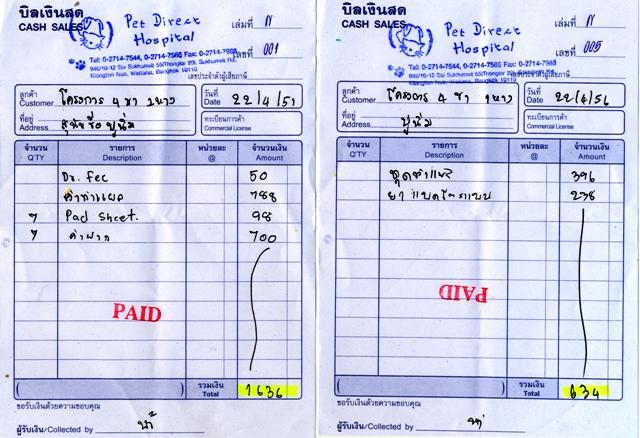 บิลเงินสด
CASH SALES
Pet Direct
Hospital
เล่มที่ 11
เลขที่ 001
Tel: 0-2714-7544, 0-2714-7566 Fax: 0-2714-7988
946/10-12 Soi Sukhumvit 55(Thonglor 20), Sukhumvit Rd.,
Klongton Nua, Wattana, Bangkok 10110
เลขประจำตัวผู้เสียภาษี
ลูกค้า
Customer โครงการ 4 ขา
วันที่
Date 22/4/51
ที่อยู่
Address
ทะเบียนการค้า
Commercial License
จำนวน รายการ หน่วยละ จำนวนเงิน
Q'TY Description @ Amount
Dr. fee 50
ค่าทำแผล 788
7 Pad Sheet. 98
7 ค่าฝาก 700
PAID
รวมเงิน
Total 1636
ขอรับเงินด้วยความขอบคุณ
ผู้รับเงิน/Collected by
บิลเงินสด
CASH SALES
Pet Direct
Hospital
เล่มที่ 11
เลขที่ 005
Tel: 0-2714-7544, 0-2714-7566 Fax: 0-2714-7988
946/10-12 Soi Sukhumvit 55(Thonglor 20), Sukhumvit Rd.,
Klongton Nua, Wattana, Bangkok 10110
เลขประจำตัวผู้เสียภาษี
ลูกค้า
Customer โครงการ 4 ขา
วันที่
Date 22/4/56
ที่อยู่
Address
ทะเบียนการค้า
Commercial License
จำนวน รายการ หน่วยละ จำนวนเงิน
Q'TY Description @ Amount
ชุดทำแผล 396
238
PAID
รวมเงิน
Total 634
ขอรับเงินด้วยความขอบคุณ
ผู้รับเงิน/Collected by